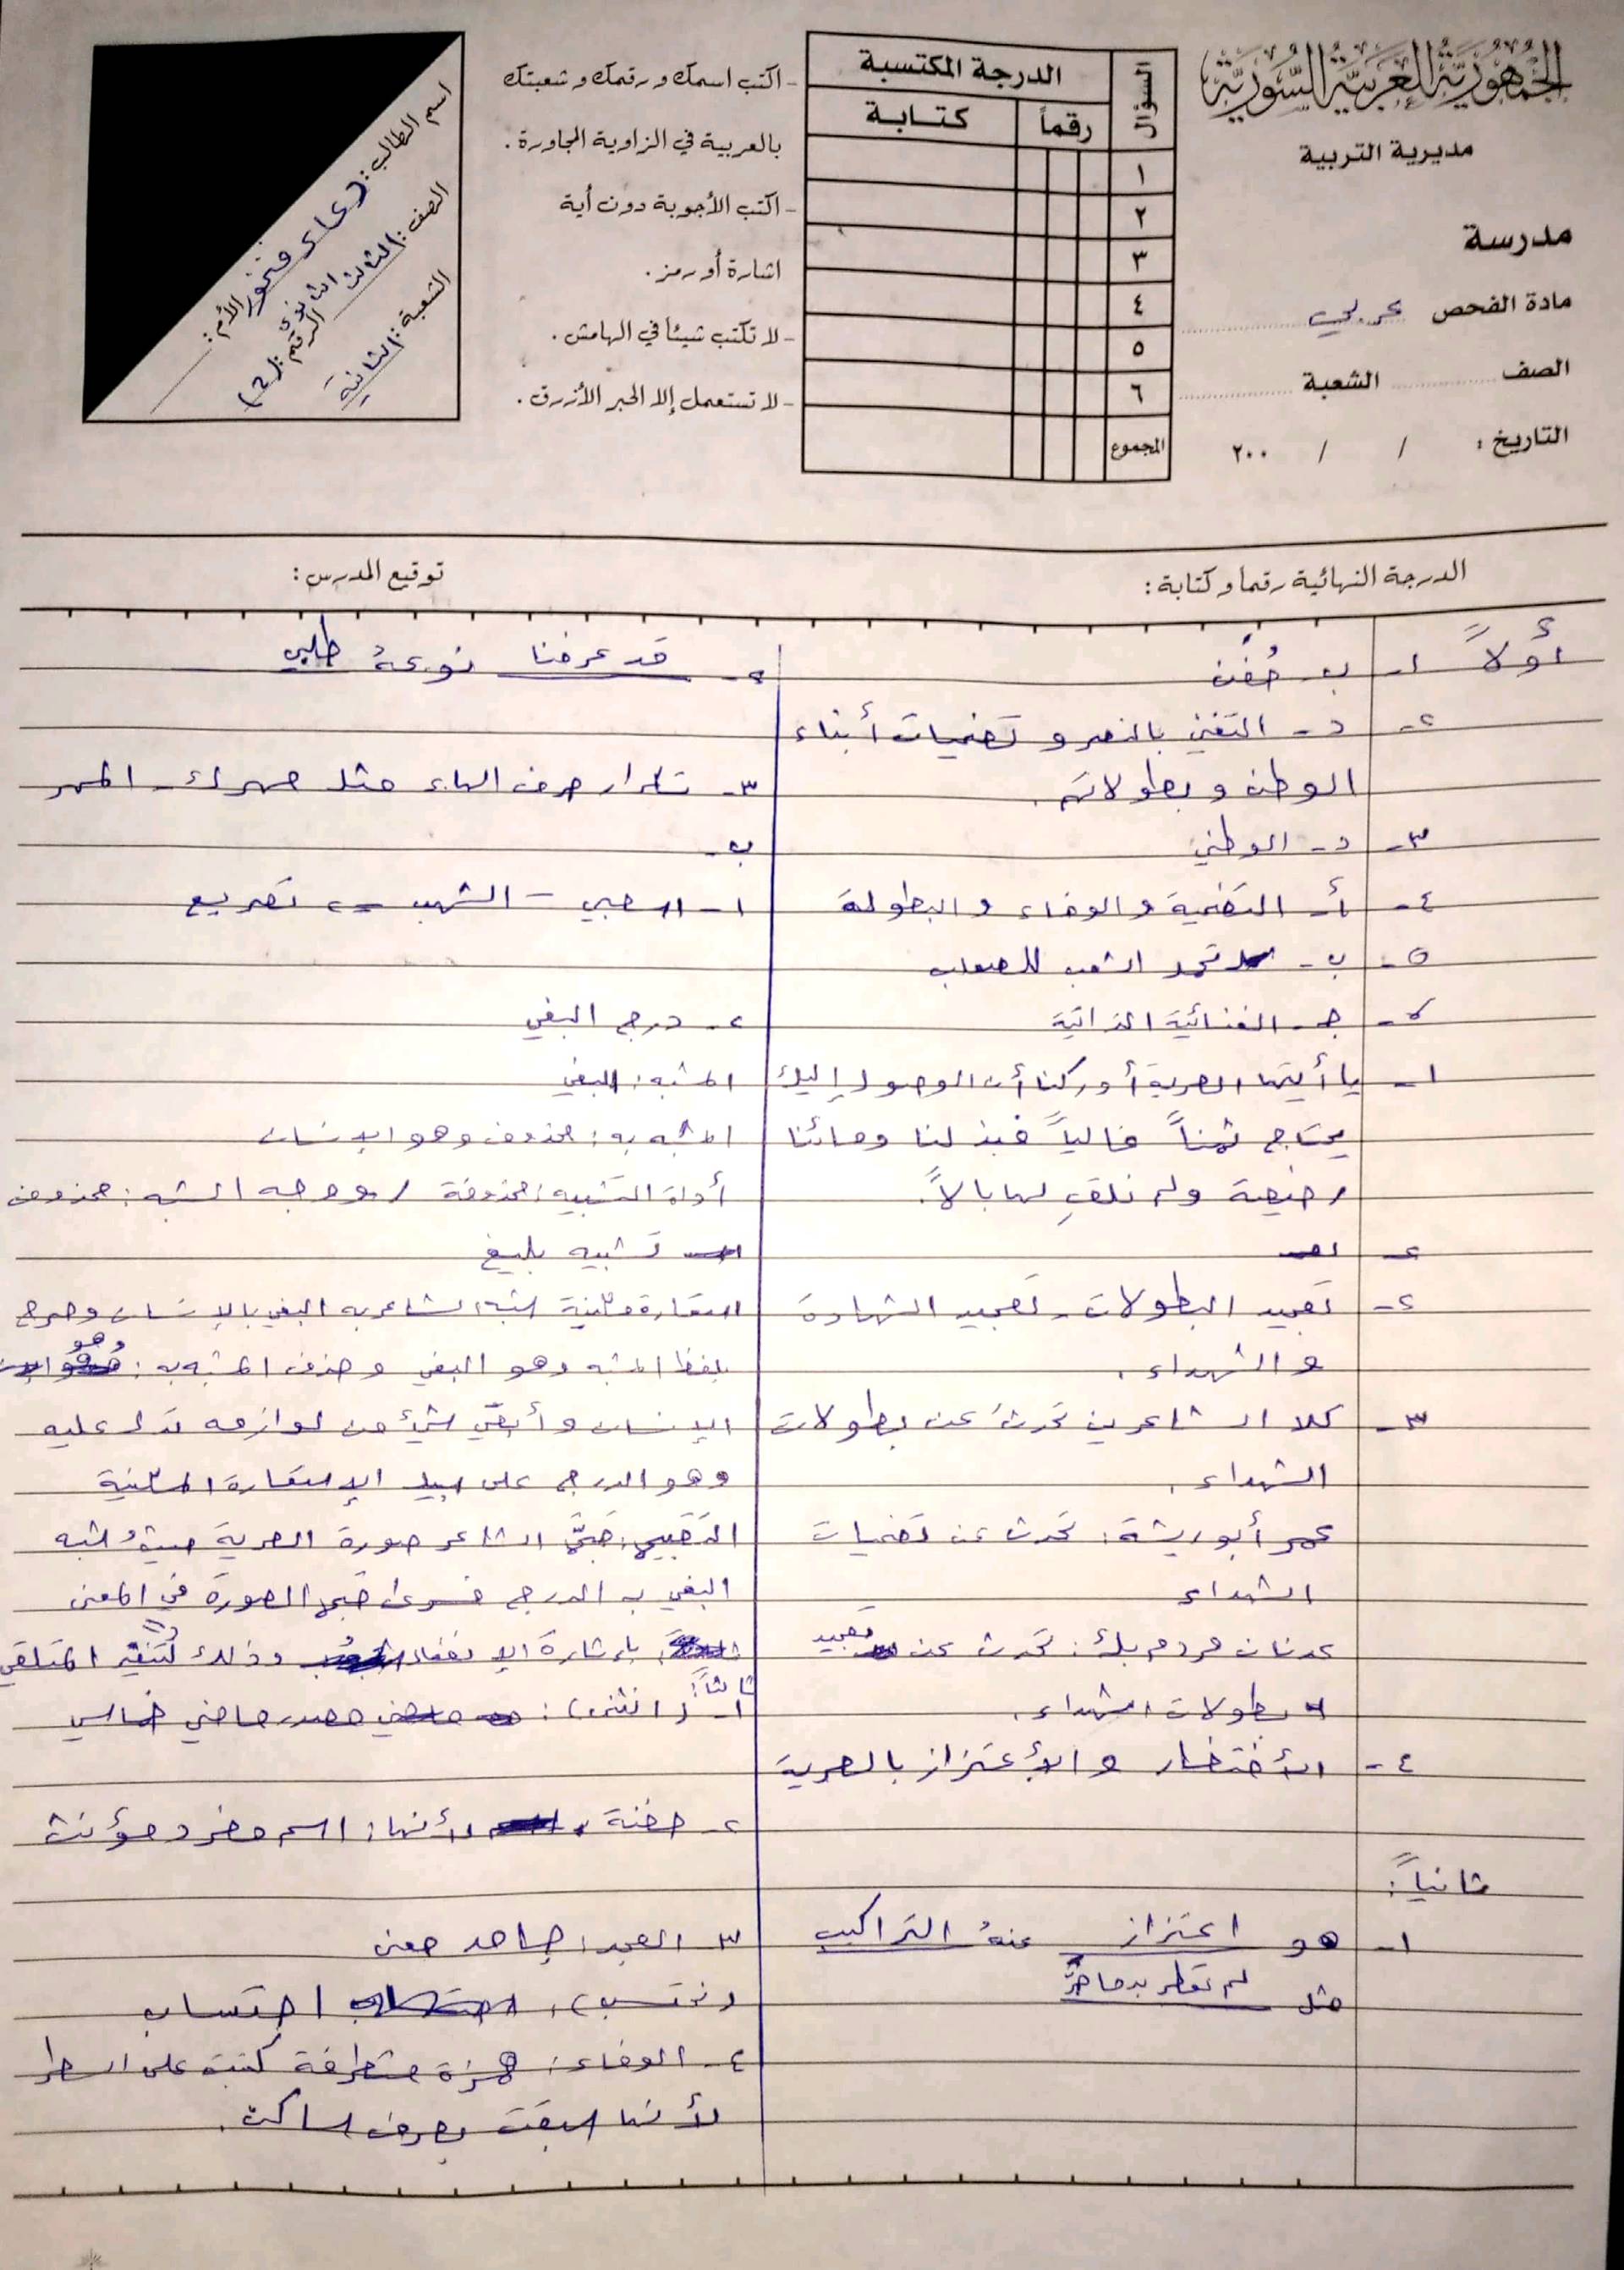 الجمهورية العربية السورية
مديرية التربية
مدرسة
مادة الفحص عربي
الصف الشعبة
التاريخ : / / ٢٠٠
السؤال الدرجة المكتسبة
رقماً كتابة
١
٢
٣
٤
٥
٦
المجموع
- اكتب اسمك ورقمك وشعبتك
بالعربية في الزاوية المجاورة .
- اكتب الأجوبة دون أية
اشارة أو رمز .
- لا تكتب شيئاً في الهامش .
- لا تستعمل إلا الحبر الأزرق .
اسم الطالب : دعاء
الصف : الثالث الثانوي الأم :
الشعبة : الثانية الرقم : (2)
الدرجة النهائية رقما وكتابة :
توقيع المدرس :
أولاً ١- ب- جُفن
٢- د- التغني بالنصر و تضحيات أبناء
الوطن و بطولاتهم .
٣- د- الوطني
٤- أ- التضحية والوفاء والبطولة
٥- ب- تحمل الشعب للصعاب
٦- جـ- الغنائية الذاتية
١- يا أيتها الحرية أدركنا أن الوصول إليك
يحتاج ثمناً غالياً فبذلنا دمائنا
رخيصة ولم نلقِ لها بالاً .
٢-
٢- تمجيد البطولات - تمجيد الشهادة
و الشهداء .
٣- كلا الشاعرين تحدث عن بطولات
الشهداء .
عمر أبو ريشة : تحدث عن تضحيات
الشهداء
عدنان مردم بك : تحدث عن تمجيد
بطولات الشهداء .
٤- الأفتخار و الأعتزاز بالحرية
ثانياً :
١- هو اعتزاز عنهُ التراكيب
مثل لم تعطر بدما حرّ
٢- قد عرفنا نوعهُ طلبي
٣- تكرار حرف الهاء مثل مهرك - المهر
ب-
١- اسحبي - الشهب => تصريع
٢- درج البغي
المشبه : البغي
المشبه به : محذوف وهو الإنسان
أداة التشبيه : محذوفة / ووجه الشبه : محذوف
تشبيه بليغ
استعارة مكنية شبه الشاعر به البغي بالإنسان وصرح
بلفظ المشبه وهو البغي و حذف المشبه به : وهو
الإنسان و أبقى شيئ من لوازمه تدل عليه
وهو الدرج على سبيل الإستعارة المكنية
التقبيح : قبّح الشاعر صورة الحرية شبه
البغي بـ الدرج قبح الصورة في المعنى
بإشارة الإنفعال وذلك لتنفير المتلقي
ثالثاً :
١- (انثنى) : مصدر ماضي خماسي
٢- حفنة ، لأنها : اسم مفرد مؤنث
٣- المجد : جامد معنى
(نحتسب) : احتساب
٤- الوفاء : همزة متطرفة كتبت على السطر
لأنها سبقت بحرف ساكن .